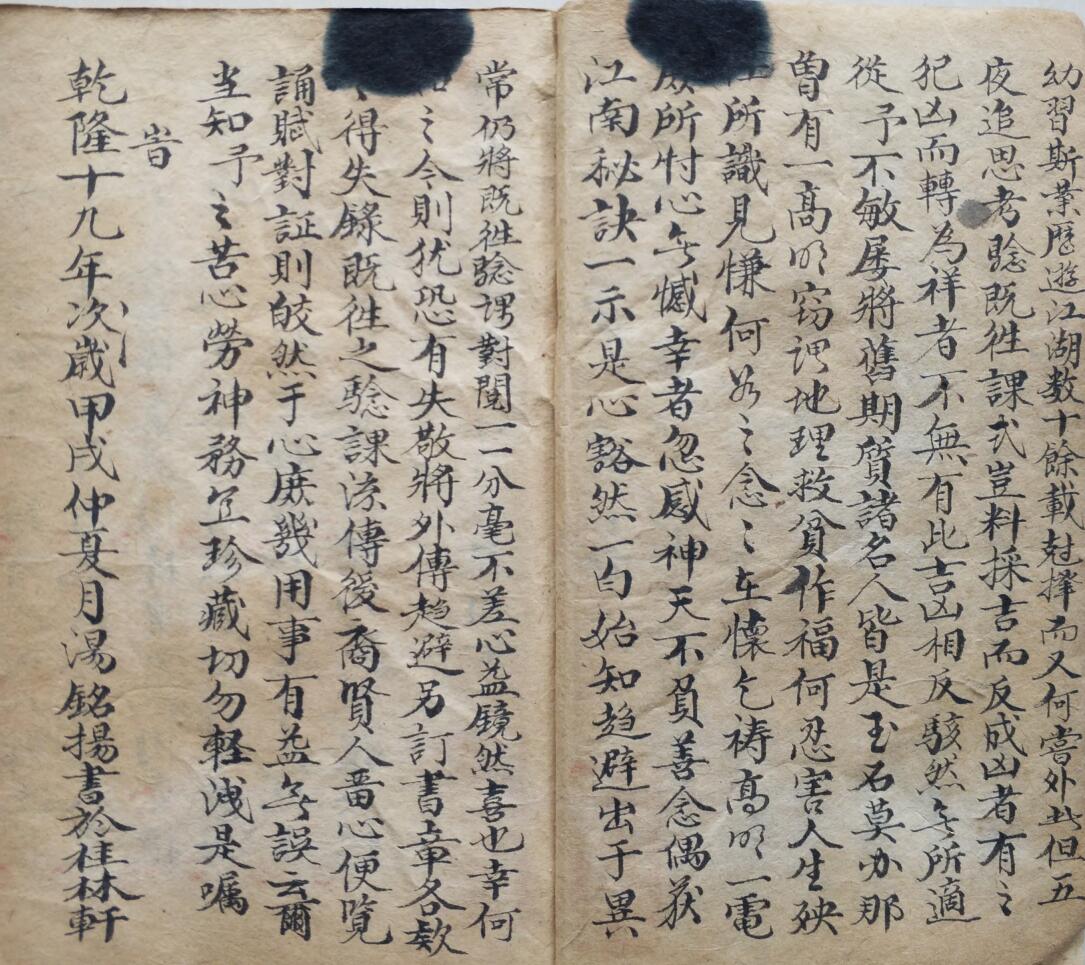 幼習斯業歷遊江湖数十餘載尅擇而又何嘗外此但五
夜追思考騐既徃課式豈料採吉而反成凶者有之
犯凶而轉為祥者不無有此吉凶相反駭然旡所適
從予不敏屡將舊期質諸名人皆是玉石莫办那
曽有一髙明窃谓地理救貧作福何忍害人生殃
所識見慊何如之念〻在懷乞祷髙明一電
所忖心旡憾幸者忽感神天不負善念偶获
江南秘訣一示是心豁然一白始知趋避出于異
常仍將既徃騐课對閲一一分毫不差心益镜然喜也幸何
之今則犹恐有失敬將外傳趋避另訂書章各欵
得失錄既徃之騐課流傳後裔賢人畱心便覧
誦賦對証則皎然于心庶幾用事有益旡誤云爾
当知予之苦心勞神務宜珍藏切勿軽洩是嘱
旹
乾隆十九年次歳甲戌仲夏月湯銘揚書於桂林軒